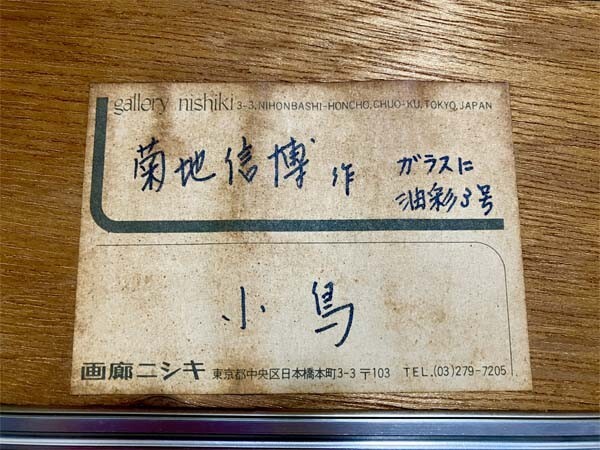 gallery nishiki 3-3, NIHONBASHI-HONCHO, CHUO-KU, TOKYO, JAPAN
菊地信博 作
ガラスに
油彩3号
小鳥
画廊ニシキ 東京都中央区日本橋本町3-3 〒103 TEL.(03)279-7205